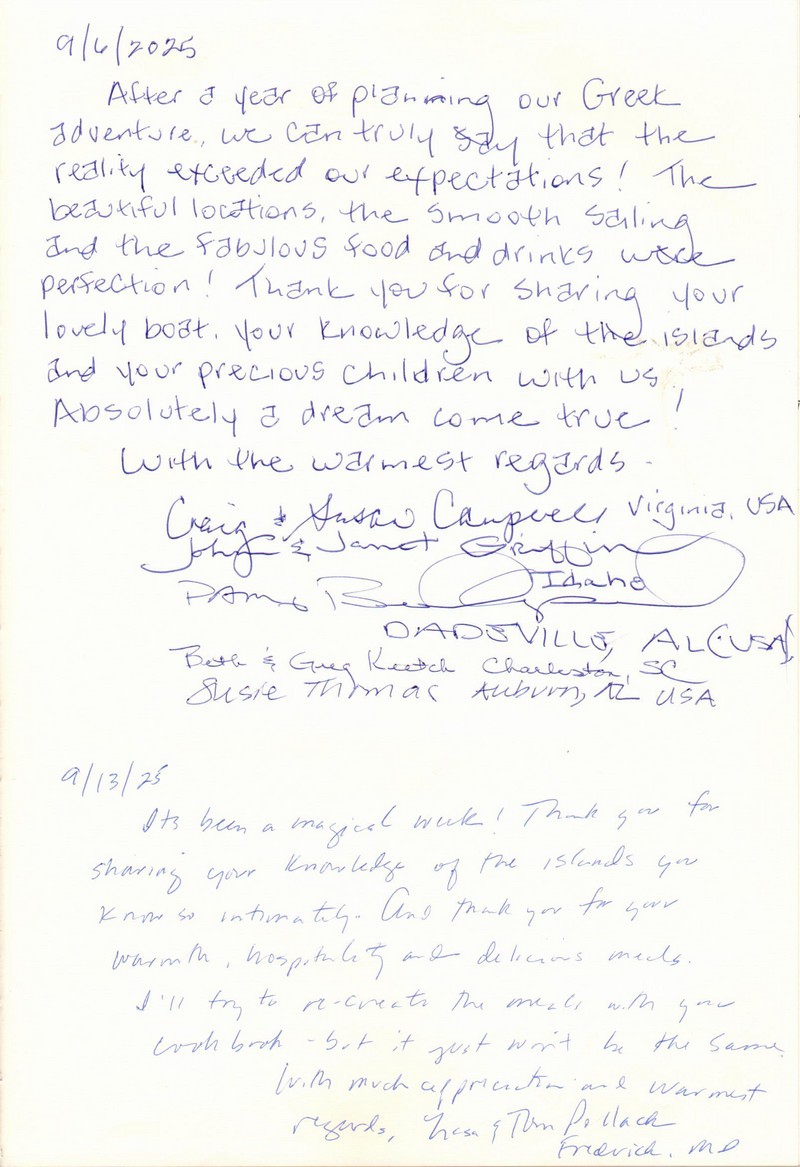 9/6/2025
After a year of planning our Greek
adventure, we can truly say that the
reality exceeded our expectations! The
beautiful locations, the smooth sailing
and the fabulous food and drinks were
perfection! Thank you for sharing your
lovely boat, your knowledge of the islands
and your precious children with us!
Absolutely a dream come true!
With the warmest regards -
Craig & Susan Campbell Virginia, USA
John & Janet Griffin
Idaho
DADEVILLE, AL (USA)
Beth & Greg Keetch Charleston, SC
Susie Thomas Auburn, AL USA
9/13/25
Its been a magical week! Thank you for
sharing your knowledge of the islands you
know so intimately. And thank you for your
warmth, hospitality and delicious meals.
I'll try to re-create the meals with your
cookbook - but it just won't be the same.
With much appreciation and warmest
regards, & Tom Pollack
Fredrick, MD